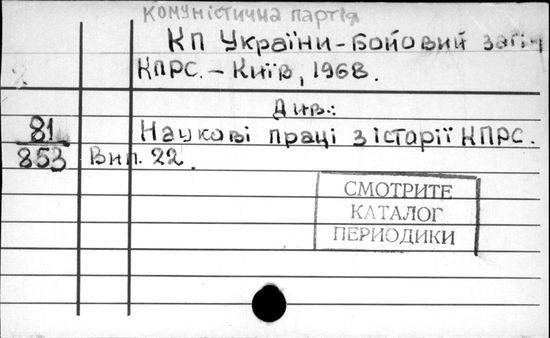 комуністична партія
КП України-Бойовий загін
КПРС. – Київ, 1968.
Див.:
81 Наукові праці з історії КПРС.
853 Вип. 22.
СМОТРИТЕ
КАТАЛОГ
ПЕРИОДИКИ